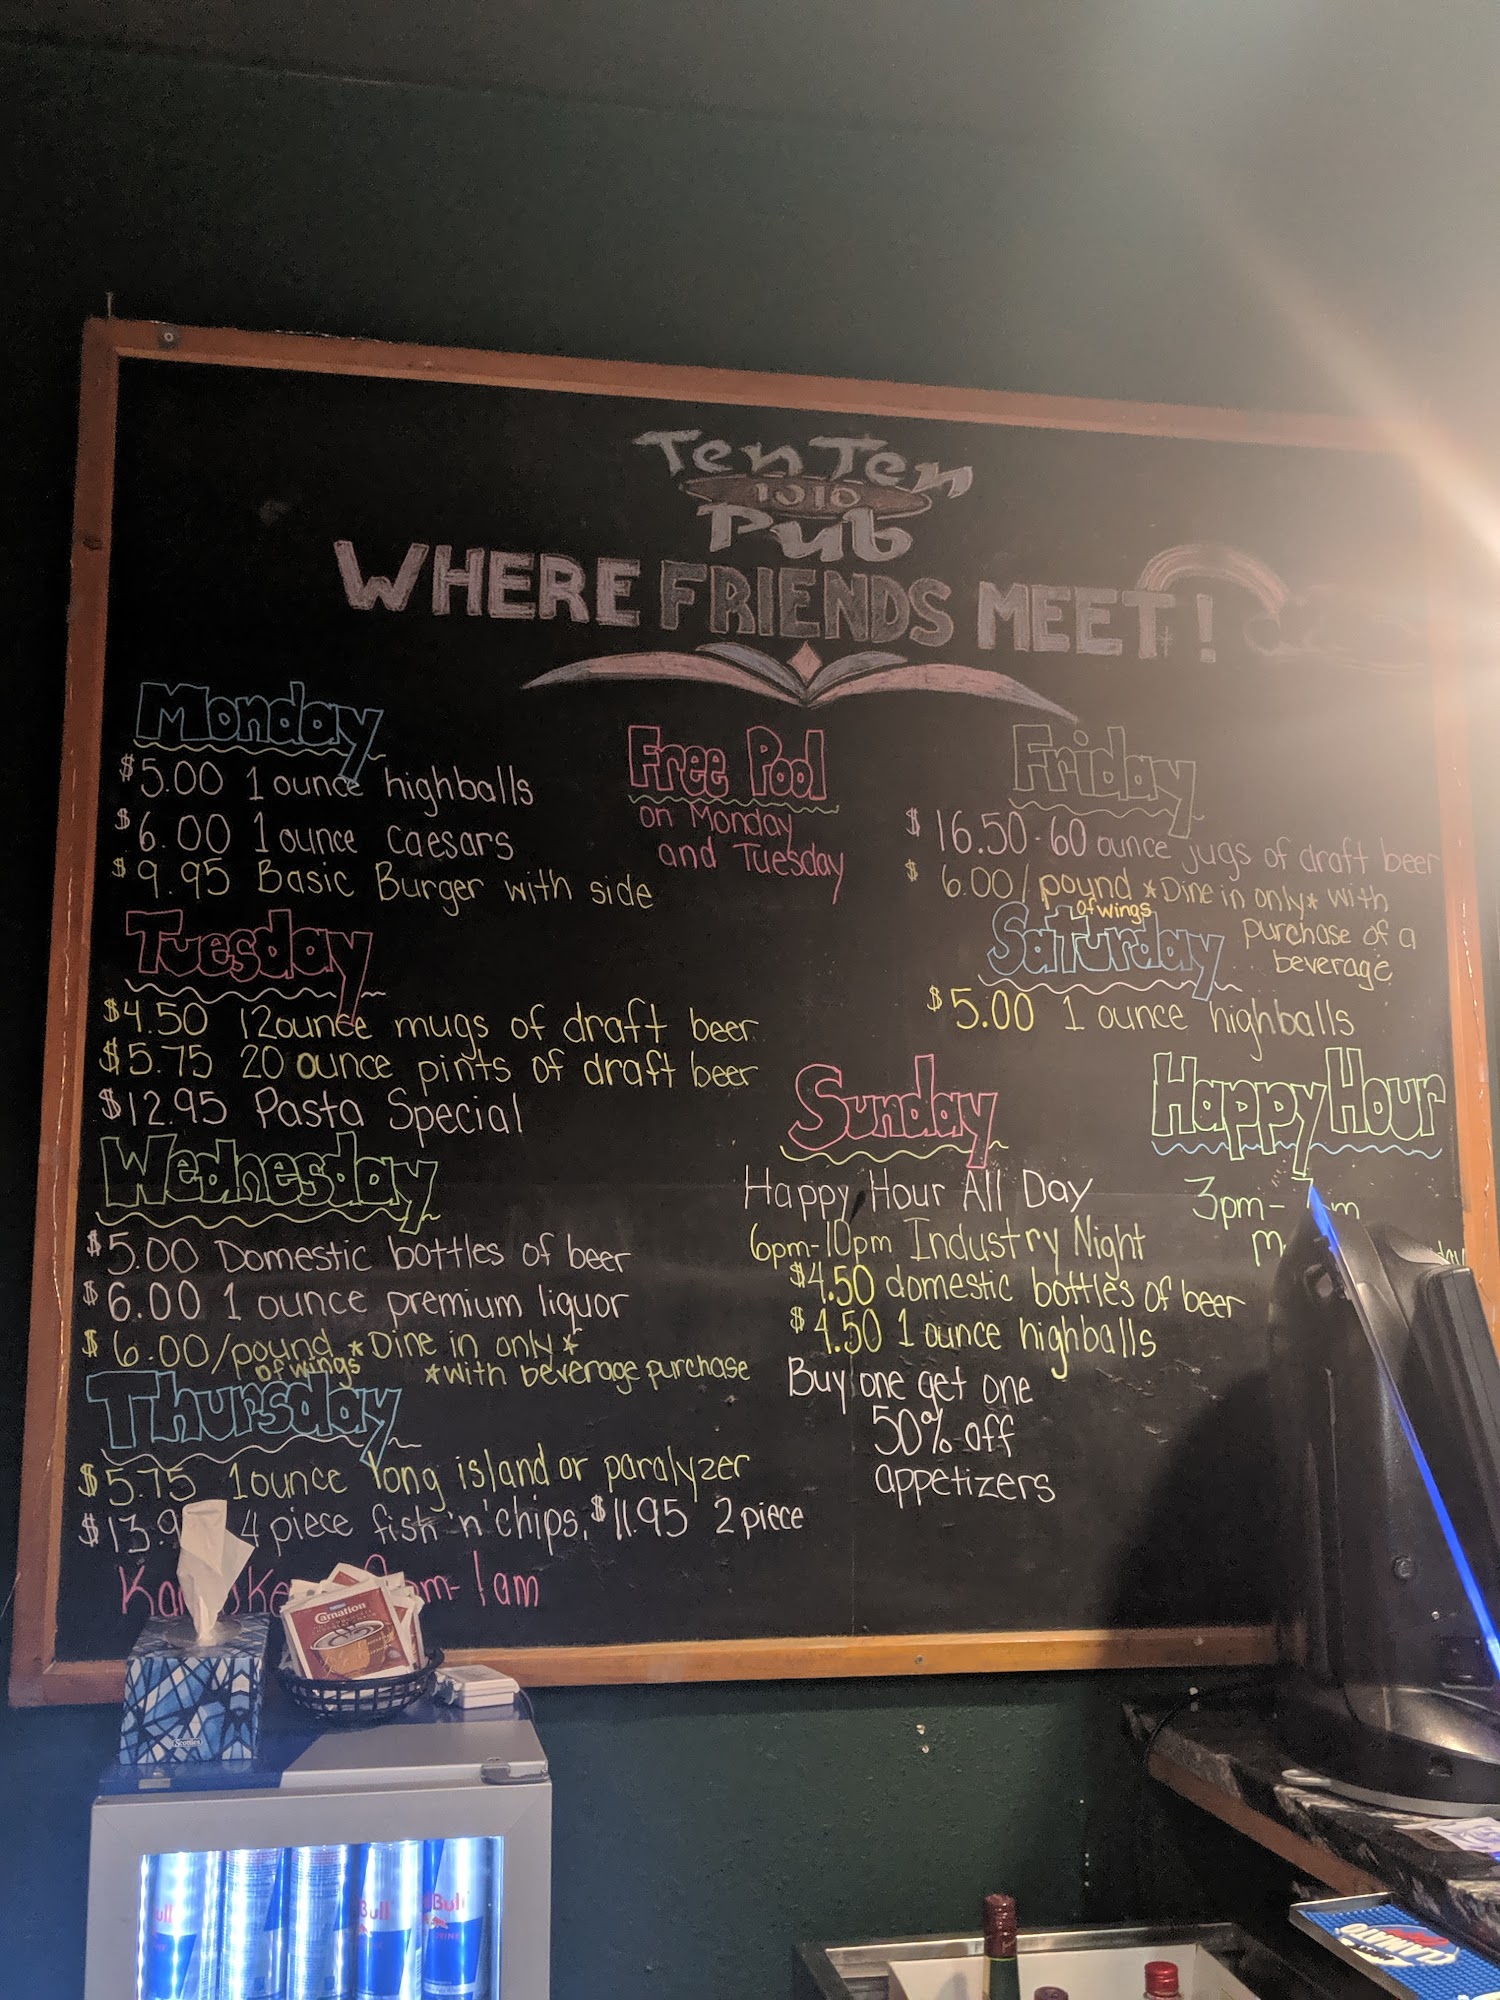 Ten Ten
1010
Pub
WHERE FRIENDS MEET!
Monday
$5.00 1 ounce highballs
$6.00 1 ounce caesars
$9.95 Basic Burger with side
Tuesday
$4.50 12 ounce mugs of draft beer
$5.75 20 ounce pints of draft beer
$12.95 Pasta Special
Wednesday
$5.00 Domestic bottles of beer
$6.00 1 ounce premium liquor
$6.00/pound *Dine in only*
of wings *with beverage purchase
Thursday
$5.75 1 ounce long island or paralyzer
4 piece fish 'n' chips, $11.95 2 piece
1am
Free Pool
on Monday
and Tuesday
Friday
$16.50-60 ounce jugs of draft beer
$6.00/pound *Dine in only* with
of wings purchase of a
beverage
Saturday
$5.00 1 ounce highballs
Sunday
Happy Hour All Day
6pm-10pm Industry Night
$4.50 domestic bottles of beer
$4.50 1 ounce highballs
Buy one get one
50% off
appetizers
Happy Hour
3pm-
Carnation
Scotties
Bull
Bull
CLAMATO